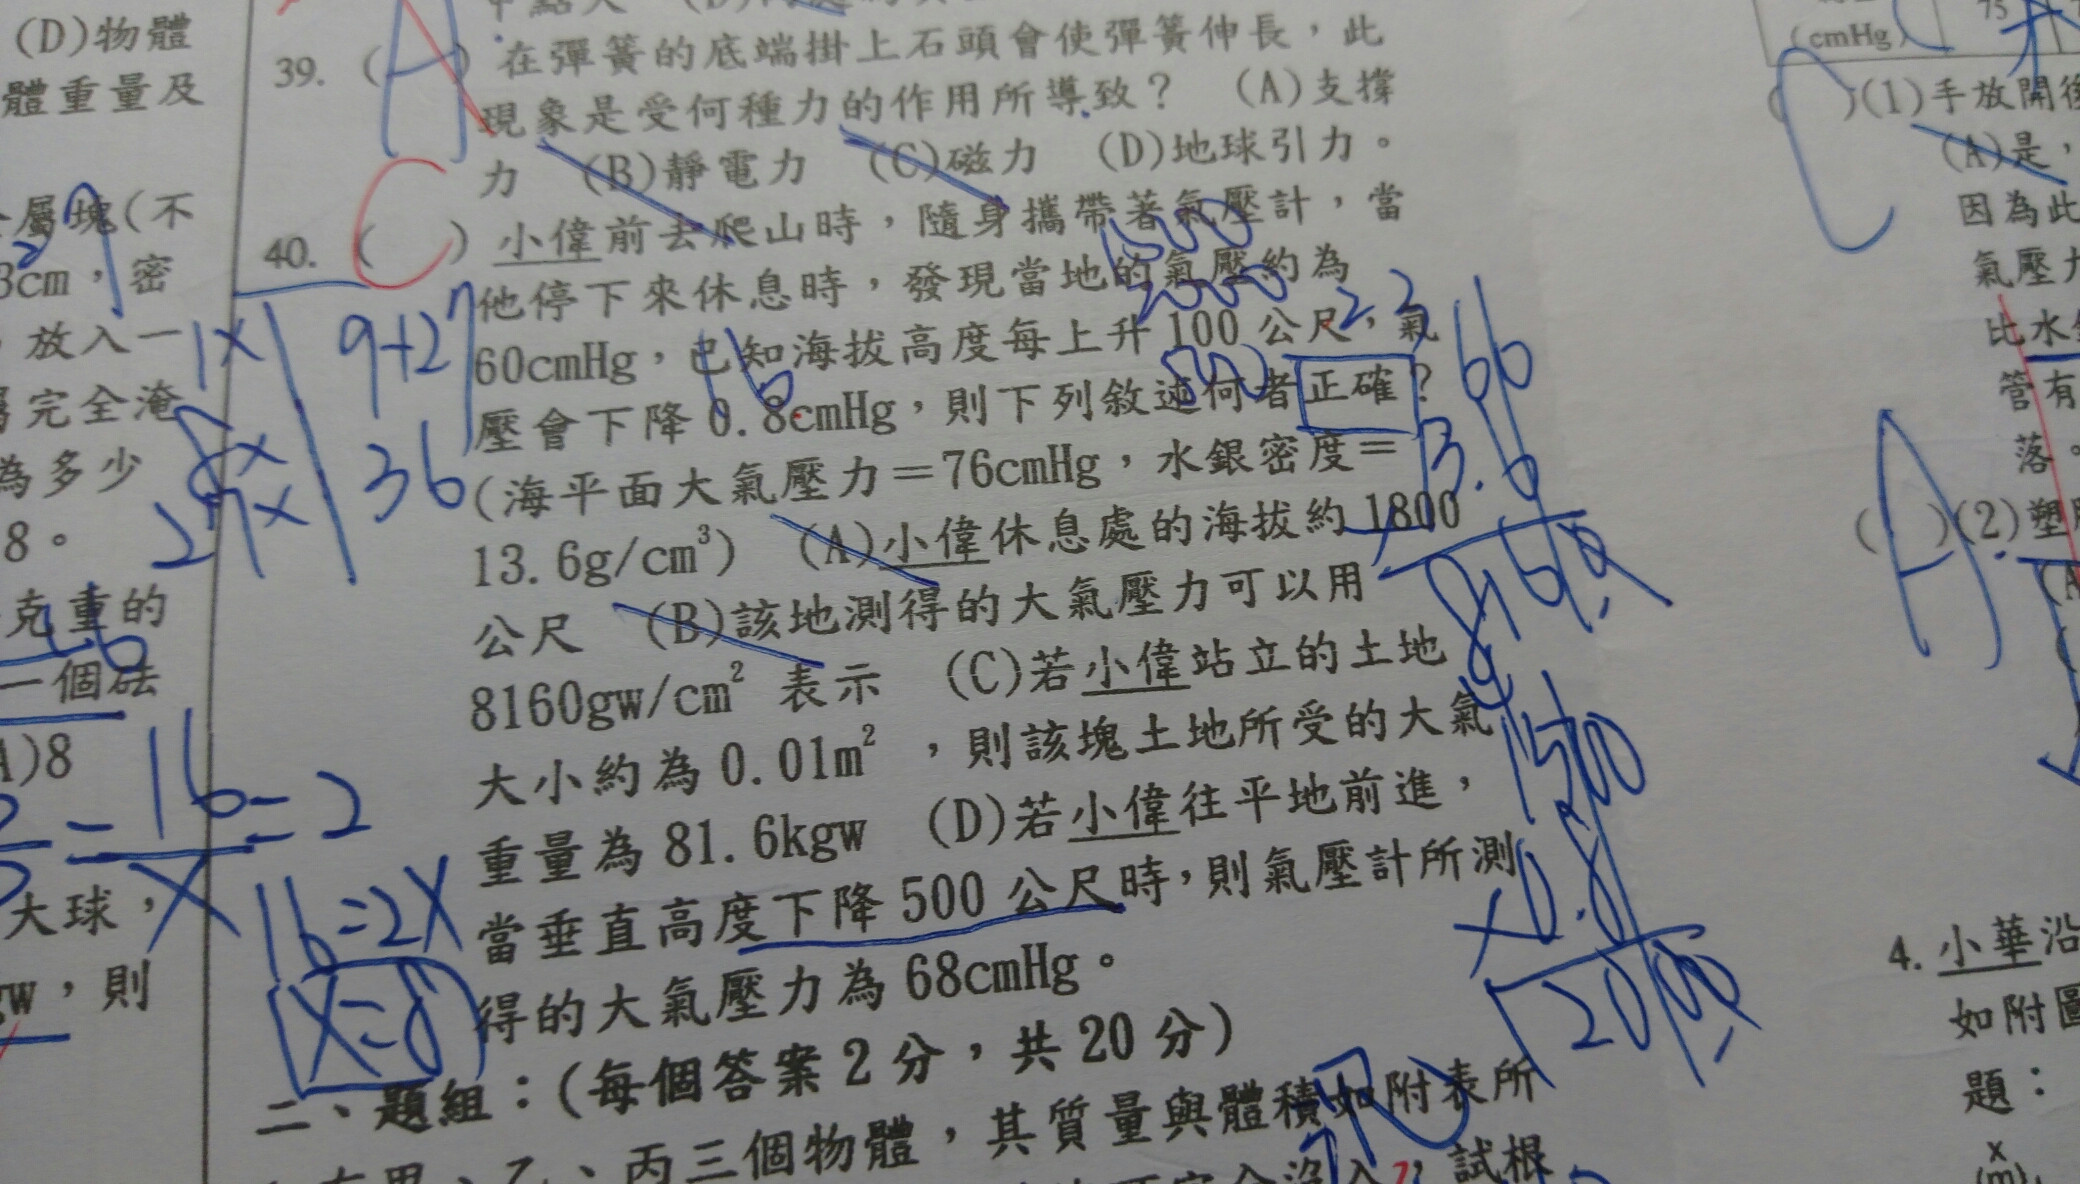 (D)物體
體重量及
屬塊(不
3cm，密
，放入一
完全淹
為多少
8。
克重的
一個砝
A)8
大球，
gw，則
39. ( A ) 在彈簧的底端掛上石頭會使彈簧伸長，此
現象是受何種力的作用所導致？ (A)支撐
力 (B)靜電力 (C)磁力 (D)地球引力。
40. ( C ) 小偉前去爬山時，隨身攜帶著氣壓計，當
他停下來休息時，發現當地的氣壓約為
60cmHg，已知海拔高度每上升100公尺，氣
壓會下降0.8cmHg，則下列敘述何者正確？
(海平面大氣壓力＝76cmHg，水銀密度＝
13.6g/cm³) (A)小偉休息處的海拔約1800
公尺 (B)該地測得的大氣壓力可以用
8160gw/cm² 表示 (C)若小偉站立的土地
大小約為0.01m²，則該塊土地所受的大氣
重量為81.6kgw (D)若小偉往平地前進，
當垂直高度下降500公尺時，則氣壓計所測
得的大氣壓力為68cmHg。
二、題組：(每個答案2分，共20分)
丙三個物體，其質量與體積如附表所
試根
1x 9+27
8x 36
27x
16
=2
x
16=2x
x=8
1500
x0.8
(cmHg) 75
( C )(1)手放開後
(A)是，
因為此
氣壓力
比水銀
管有
落。
( A )(2)塑
4. 小華沿
如附圖
題：
x
(m)